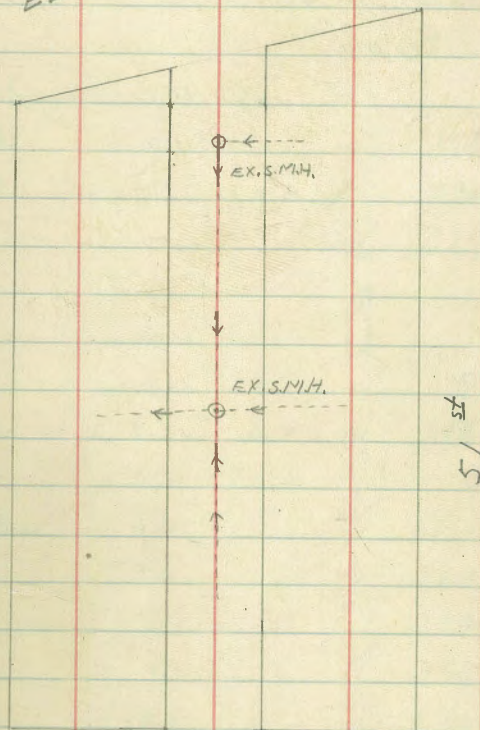 EX. S.M.H.
EX. S.M.H.
51 st